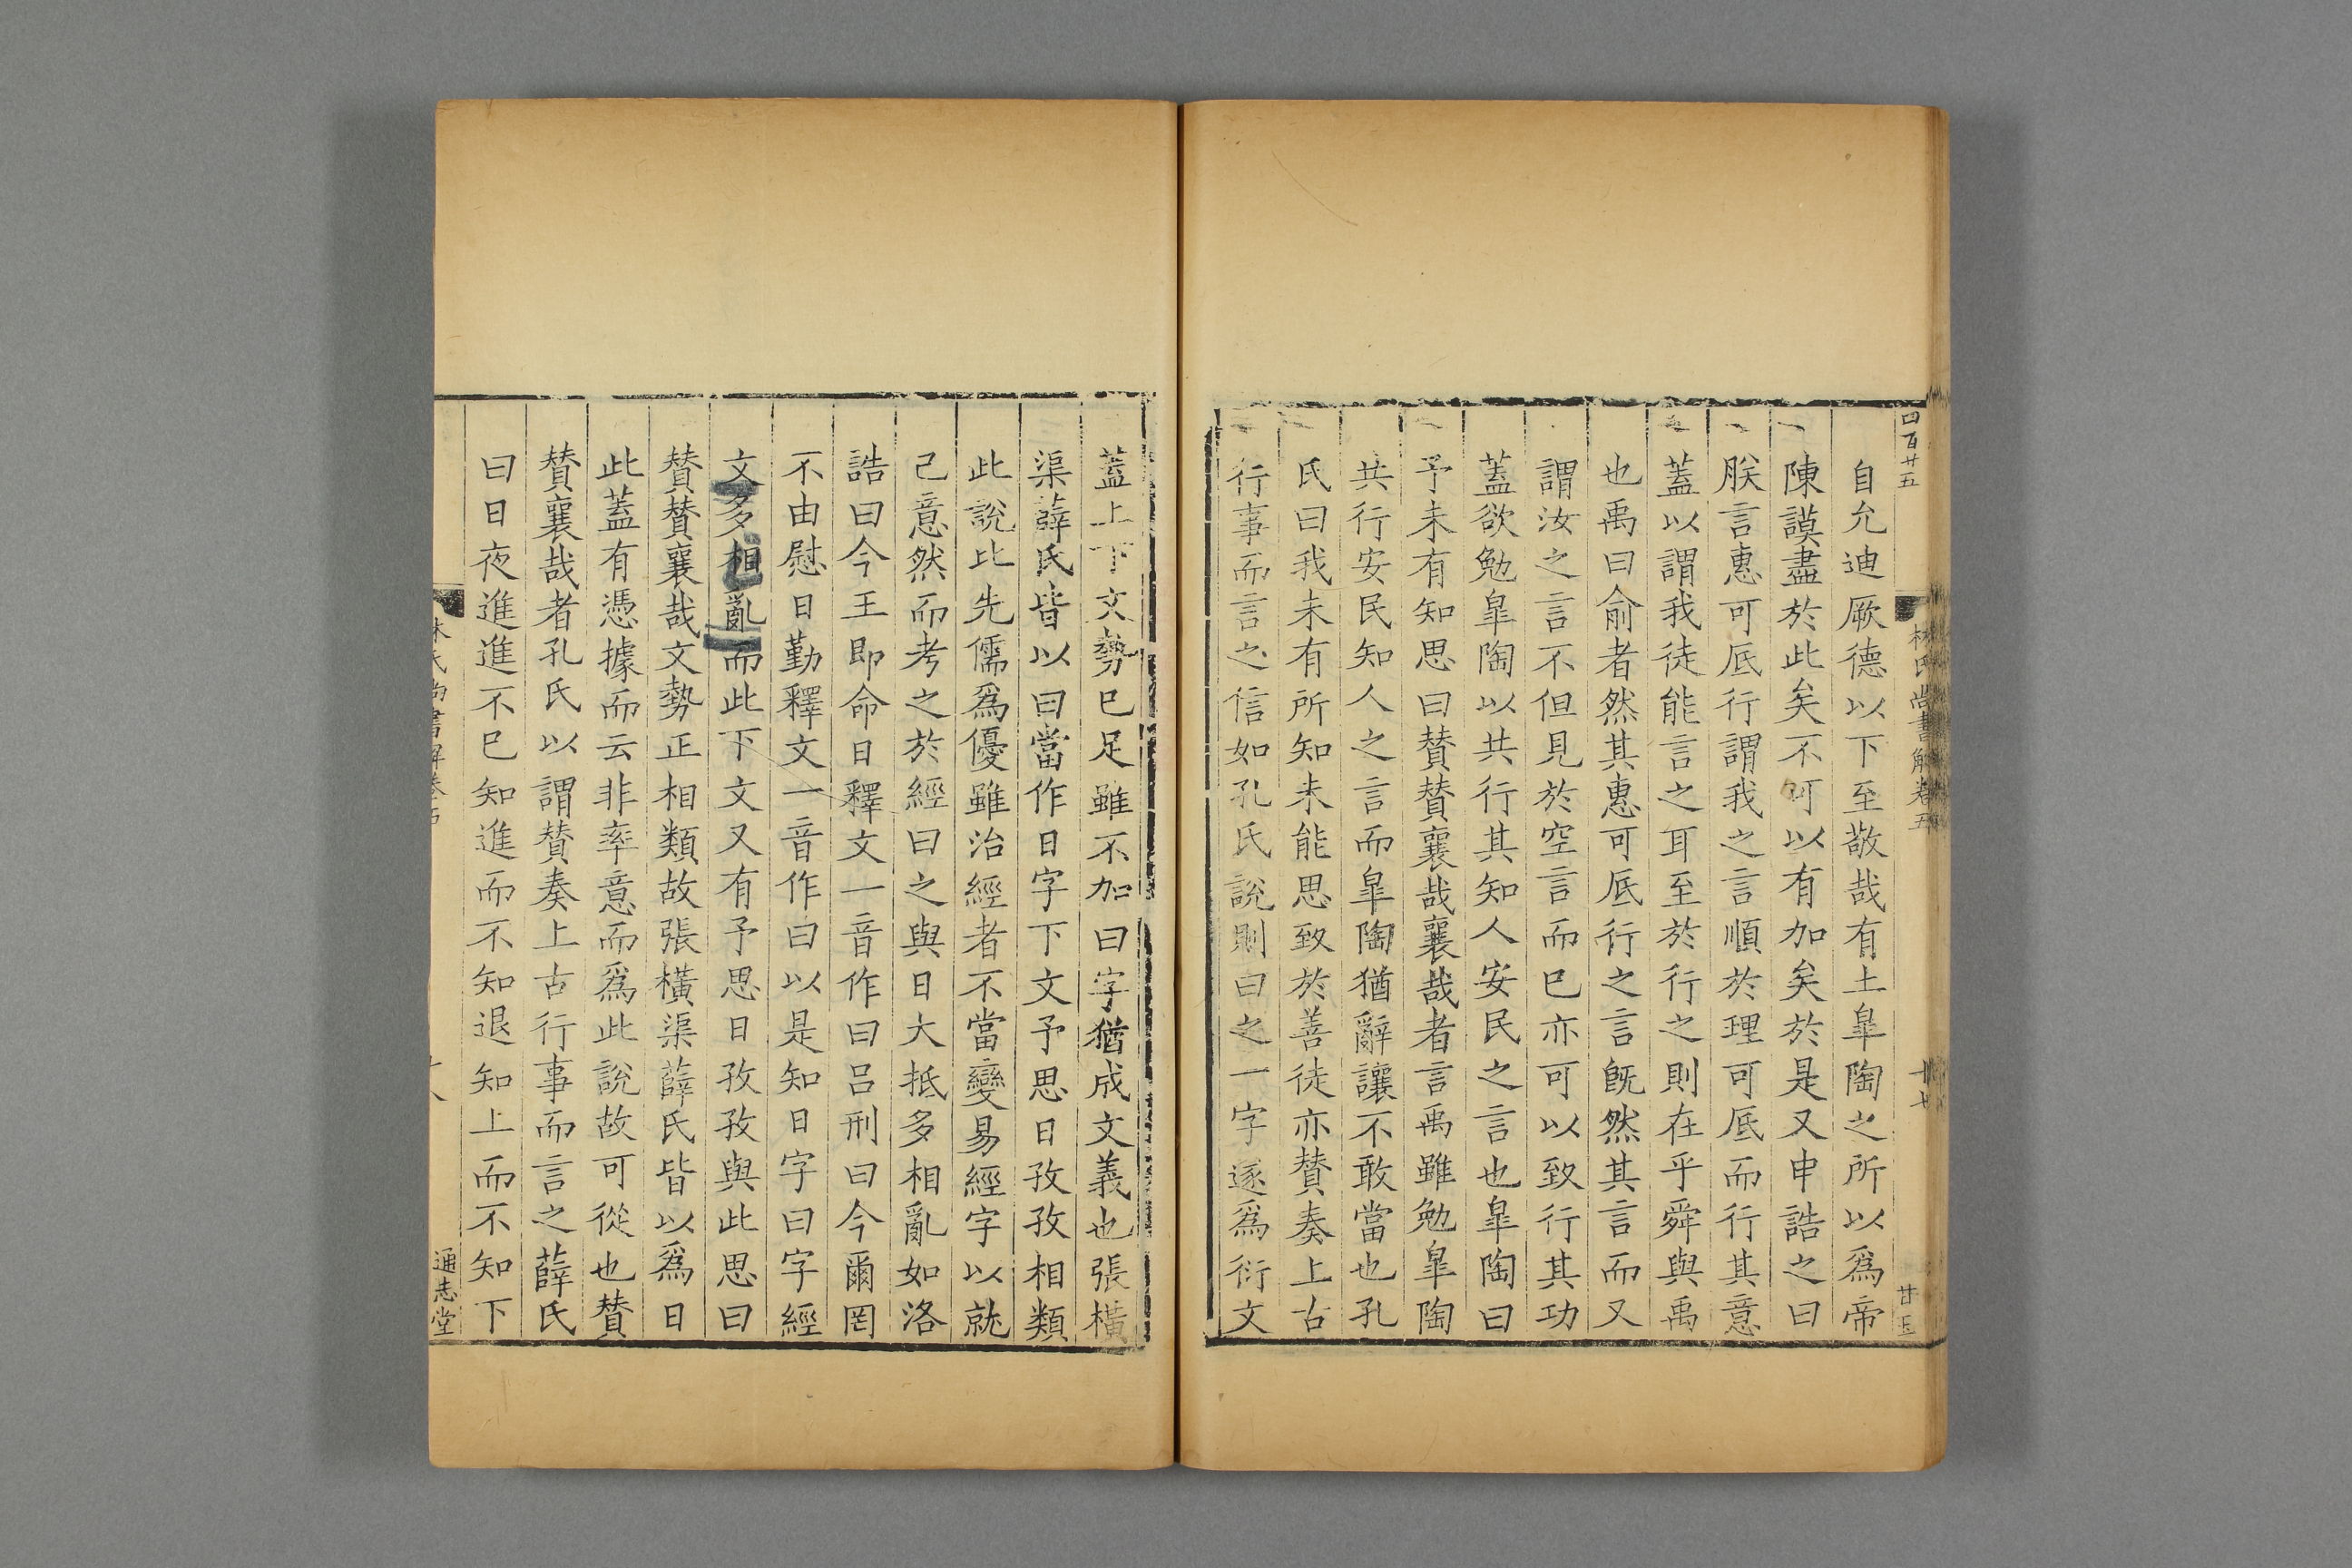 四百廿五
林氏尚書解卷五
廿五
自允迪厥德以下至敬哉有土臯陶之所以爲帝
陳謨盡於此矣不可以有加矣於是又申誥之曰
朕言惠可厎行謂我之言順於理可厎而行其意
蓋以謂我徒能言之耳至於行之則在乎舜與禹
也禹曰俞者然其惠可厎行之言旣然其言而又
謂汝之言不但見於空言而已亦可以致行其功
蓋欲勉臯陶以共行其知人安民之言也臯陶曰
予未有知思曰贊贊襄哉襄哉者言禹雖勉臯陶
共行安民知人之言而臯陶猶辭讓不敢當也孔
氏曰我未有所知未能思致於善徒亦贊奏上古
行事而言之信如孔氏說則曰之一字遂爲衍文
蓋上下文勢已足雖不加曰字猶成文義也張橫
渠薛氏皆以曰當作日字下文予思日孜孜相類
此說比先儒爲優雖治經者不當變易經字以就
己意然而考之於經曰之與日大抵多相亂如洛
誥曰今王即命曰釋文一音作日呂刑曰今爾罔
不由慰日勤釋文一音作曰以是知日字曰字經
文多相亂而此下文又有予思日孜孜與此思曰
贊贊襄哉文勢正相類故張橫渠薛氏皆以爲日
此蓋有憑據而云非率意而爲此說故可從也贊
贊襄哉者孔氏以謂贊奏上古行事而言之薛氏
曰日夜進進不已知進而不知退知上而不知下
林氏尚書解卷五
十八
通志堂